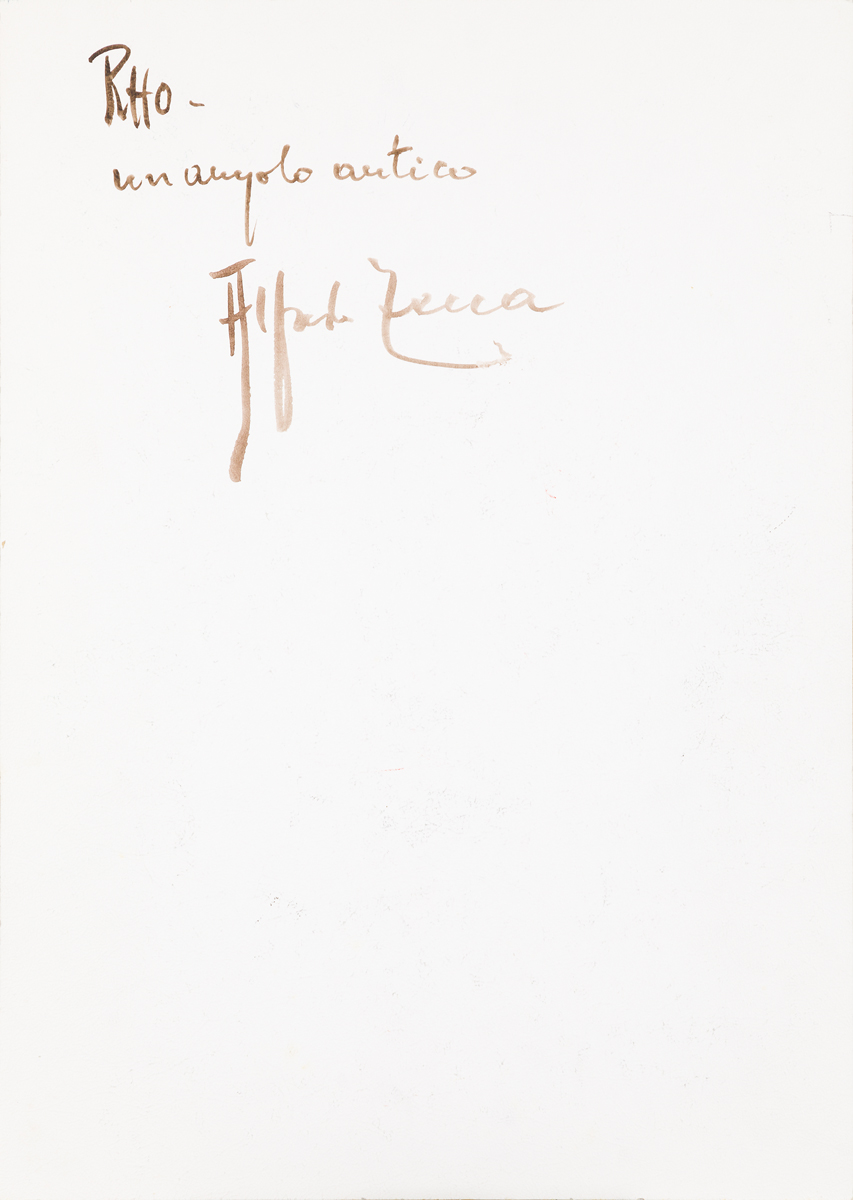 RHO -
un angolo antico
Alfredo Zecca